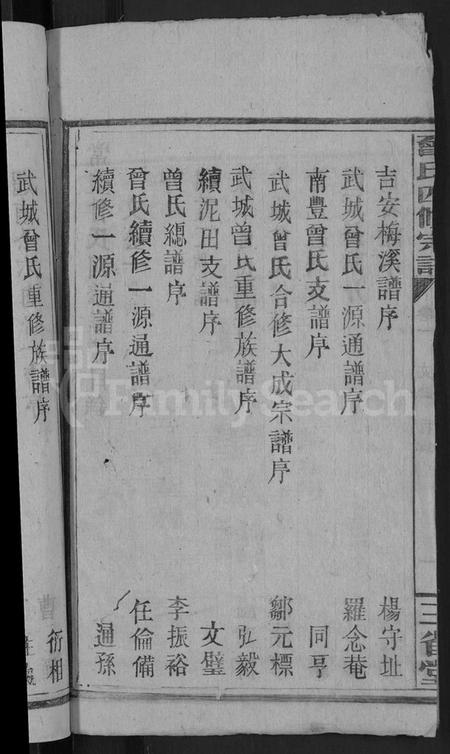 曾氏四修宗譜
三省堂
吉安梅溪譜序 楊守址
武城曾氏一源通譜序 羅念菴
南豐曾氏支譜序 同亨
武城曾氏合修大成宗譜序 鄒元標
武城曾氏重修族譜序 弘毅
續泥田支譜序 文璧
曾氏總譜序 李振裕
曾氏續修一源通譜序 任倫備
續修一源通譜序 通孫
武城曾氏重修族譜序 衍相
FamilySearch